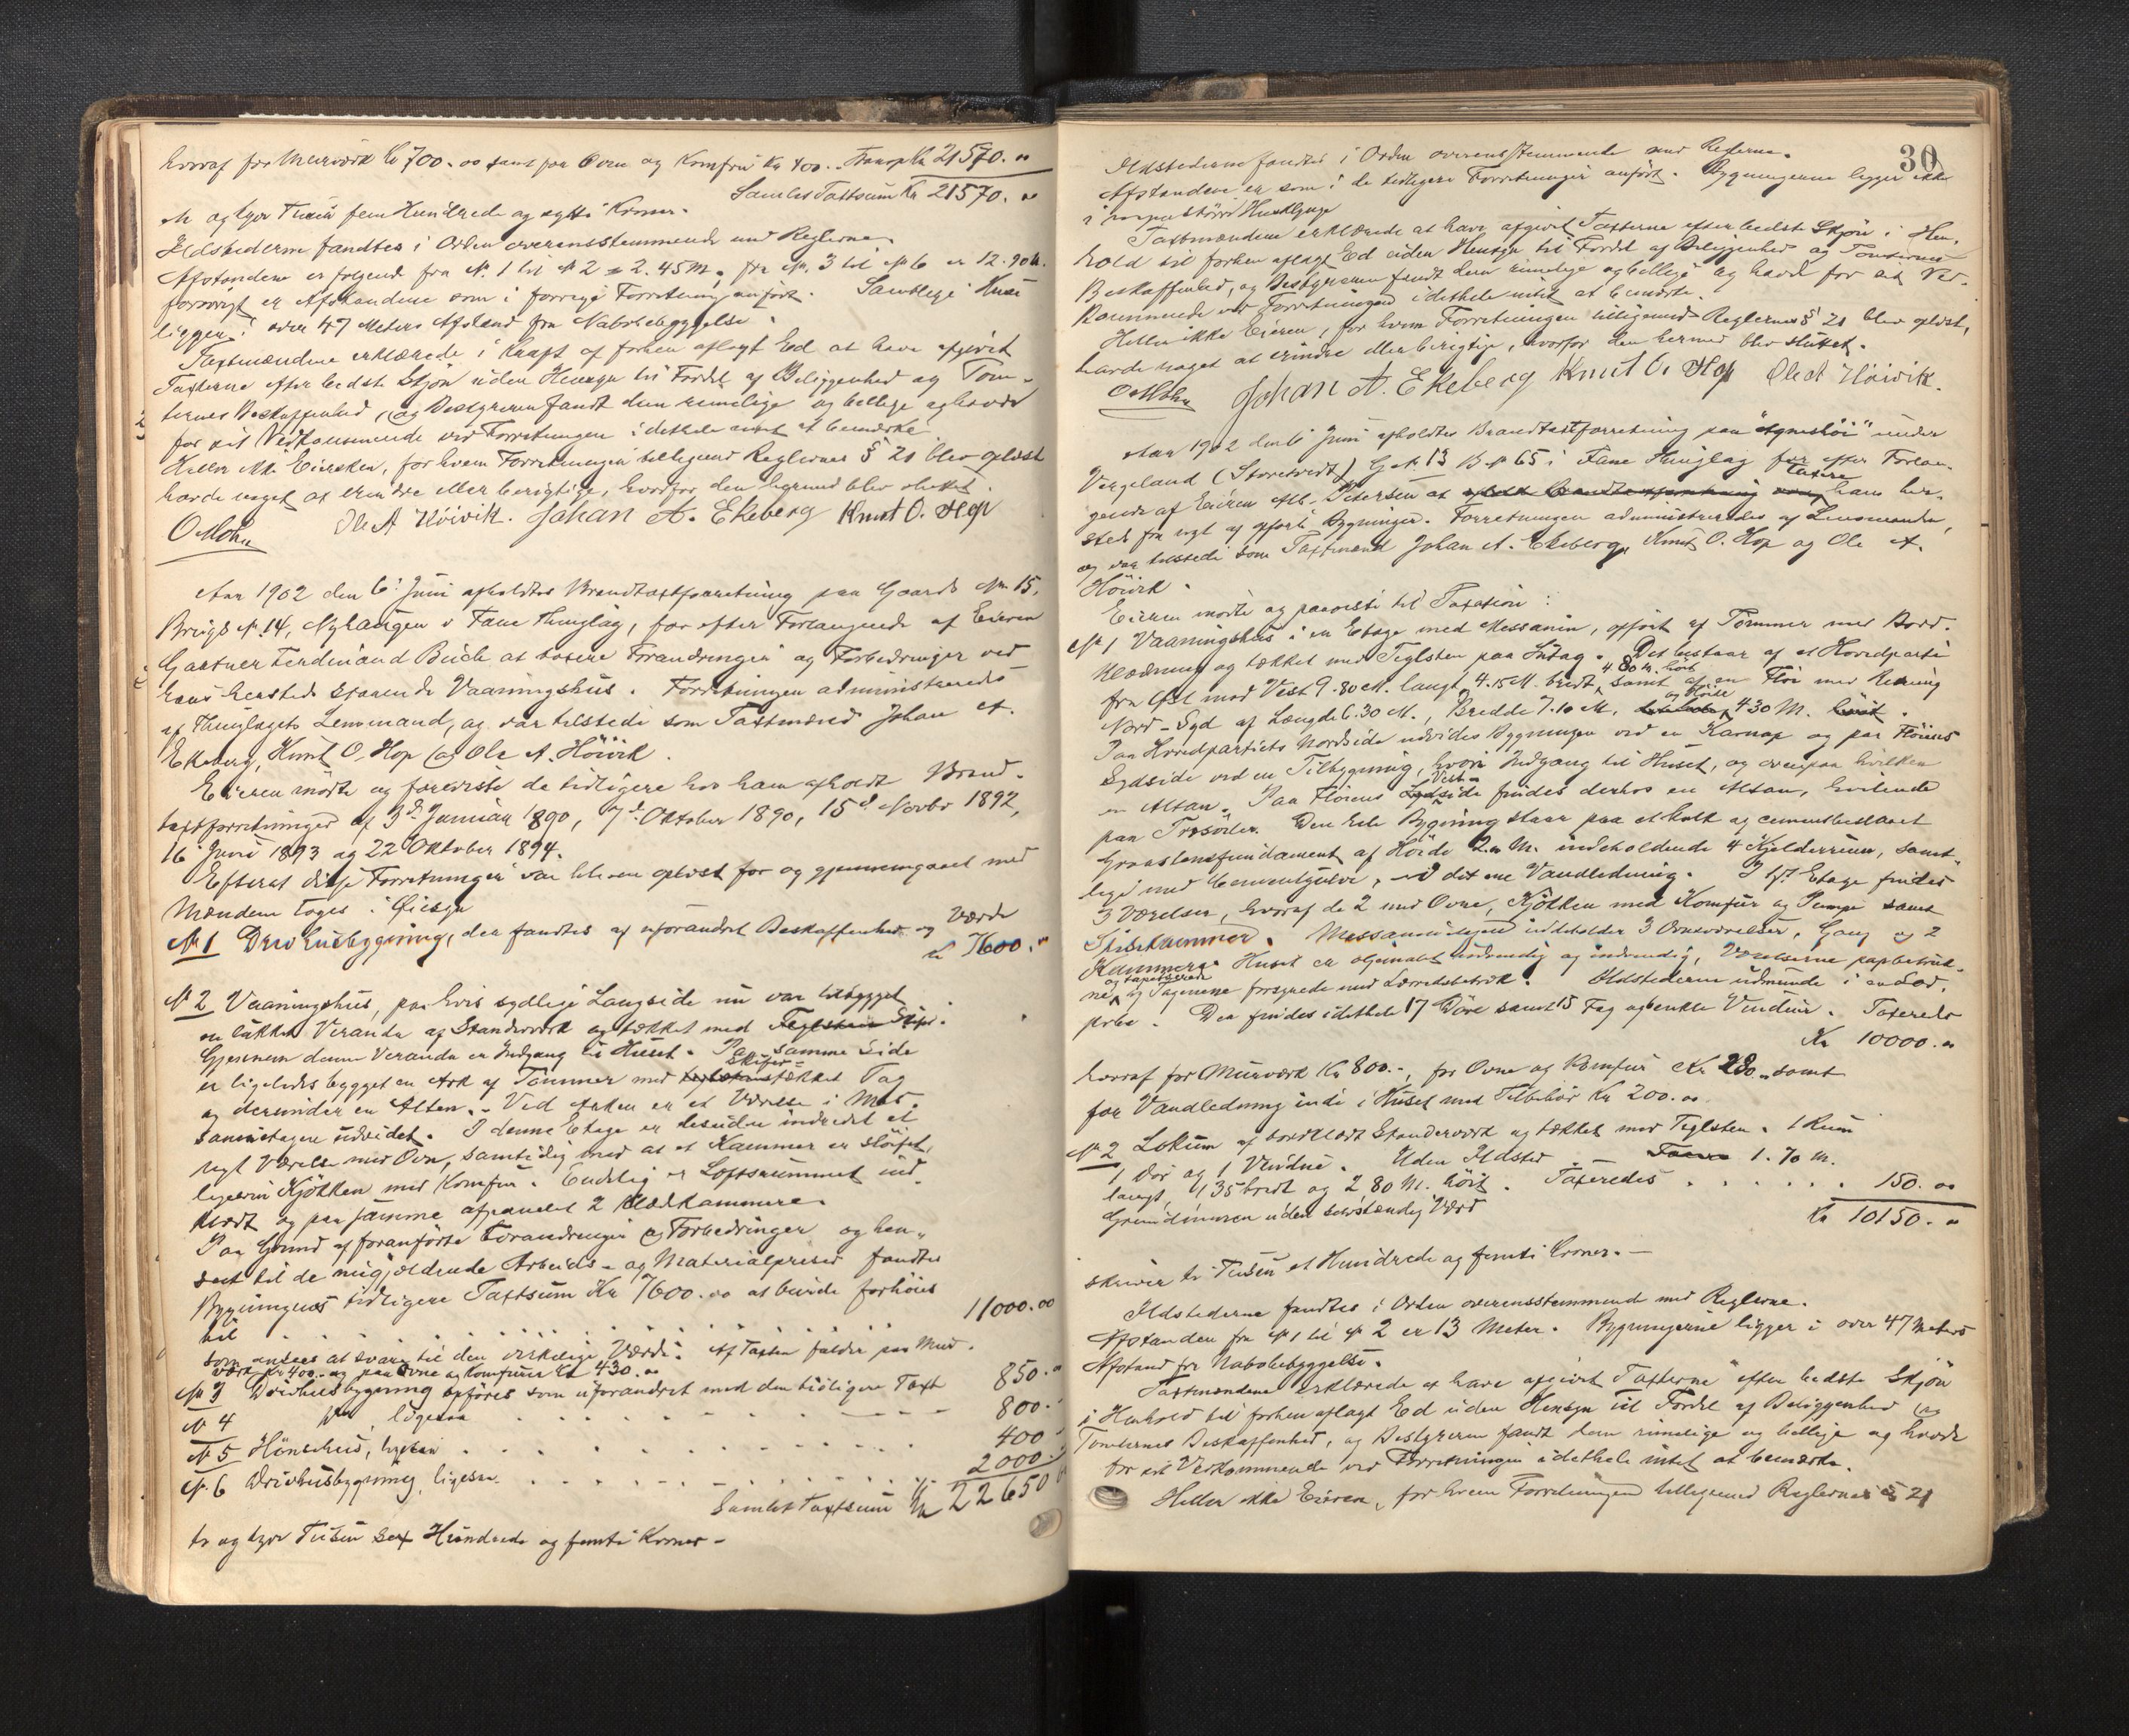 hvoraf for Murværk Kr 700.00 samt for Ovn og Komfur Kr 400. Transp Kr 21570.00
Samlet Taxtsum Kr 21570.00
et og tyve Tusen fem Hundrede og sytti Kroner.
Ildstederne fandtes i Orden overensstemmende med Reglerne.
Afstandene er følgende fra № 1 til № 2 = 2.45 M, fra № 3 til № 6 er 12.90 M.
forøvrigt er Afstandene som i forrige Forretning anført. Samtlige Huse
ligger i over 47 Meters Afstand fra Nabobebyggelse.
Taxtmændene erklærede i Kraft af forhen aflagt Ed at have afgivet
Taxterne efter bedste Skjøn uden Hensyn til Fordel af Beliggenhed og Tom-
ternes Beskaffenhed, og Bestyreren fandt dem rimelige og billige og havde
for sit Vedkommende ved Forretningen i dethele intet at bemærke.
Heller ikke Eiersken, for hvem Forretningen tilligemed Reglernes § 21 blev oplæst
havde noget at erindre eller berigtige, hvorfor den hermed blev sluttet.
O Mohn Ole A Høivik. Johan A. Ekeberg Knut O. Hop
Aar 1902 den 6. Juni afholdtes Brandtaxtforretning paa Gaards No 15,
Brugs № 14, Nyhaugen i Fane Thinglag, for efter Forlangende af Eieren
Gartner Ferdinand Buch at taxere Forandringer og Forbedringer ved
hans hersteds staaende Vaaningshus. Forretningen administreredes
af Thinglagets Lensmand, og var tilstede som Taxtmænd Johan A.
Ekeberg, Knut O. Hop og Ole A. Høivik.
Eieren mødte og foreviste de tidligere hos ham afholdt Brand-
taxtforretninger af 3d Januar 1890, 7d Oktober 1890, 15d Novbr 1892,
16 Juni 1893 og 22 Oktober 1894.
Efterat disse Forretninger var bleven oplæst for og gjennemgaaet med
Mændene toges i Øiesyn
№ 1 Drivhusbygning, der fandtes af uforandret Beskaffenhed og Værdi
Kr 7600.00
№ 2 Vaaningshus, paa hvis sydlige Langside nu var tilbygget
en lukket Veranda af Standerværk og tækket med Teglsten Skifer.
Gjennem denne Veranda er Indgang til Huset. Paa samme Side
er ligeledes bygget en Ark af Tømmer med skifertækket Tag
og derunder en Altan. Ved Arken er et Værelse i Mes-
saninetagen udvidet. I denne Etage er desuden indredet et
nyt Værelse med Ovn, samtidig med at et Kammer er sløifet,
ligesom Kjøkken med Komfur. Endelig er Loftsrummet ind-
klædt og paa samme afpanelet 2 Klædkammere.
Paa Grund af foranførte Forandringer og Forbedringer og hen-
seet til de nugjældende Arbeids- og Materialpriser fandtes
Bygningens tidligere Taxtsum Kr 7600.00 at burde forhøies
til 11000.00
som ansees at svare til den virkelige Værdi. Af Taxten falder paa Mur-
værk Kr 400.- og paa Ovne og Komfurer Kr 430.00
№ 3 Drivhusbygning opføres som uforandret med den tidligere Taxt 850.00
№ 4 ligesaa 800.-
№ 5 Hønsehus, ligesaa 400
№ 6 Drivhusbygning, ligesaa 2000.-
Samlet Taxtsum Kr 22650
to og tyve Tusen sex Hundrede og femti Kroner -
30
Ildstederne fandtes i Orden overensstemmende med Reglerne.
Afstandene er som i de tidligere Forretninger anført. Bygningerne ligger ikke
i sammenstødende Husklynge
Taxtmændene erklærede at have afgivet Taxterne efter bedste Skjøn i Hen-
hold til forhen aflagt Ed uden Hensyn til Fordel af Beliggenhed og Tomternes
Beskaffenhed, og Bestyreren fandt dem rimelige og billige og havde for sit Ved-
kommende ved Forretningen i dethele intet at bemærke.
Heller ikke Eieren, for hvem Forretningen tilligemed Reglernes § 21 blev oplæst,
havde noget at erindre eller berigtige, hvorfor den hermed blev sluttet.
O Mohn Johan A. Ekeberg Knut O. Hop Ole A Høivik.
Aar 1902 den 6 Juni afholdtes Brandtaxtforretning paa "Agneshøi" under
Vergeland (Storetvedt) G. № 13 B № 65 i Fane Thinglag for efter Forlan-
gende af Eieren Petersen at taxere hans her-
steds fra nyt af opførte Bygninger. Forretningen administreredes af Lensmanden,
og var tilstede som Taxtmænd Johan A. Ekeberg, Knut O. Hop og Ole A.
Høivik.
Eieren mødte og paaviste til Taxation:
№ 1 Vaaningshus i en Etage med Messanin, opført af Tømmer med Bord-
klædning og tækket med Teglsten paa Sutag. Det bestaar af et Hovedparti
fra Øst mod Vest 9.80 M. langt 4.15 M. bredt 4.80 M. høit samt af en Fløi med Retning
Nord-Syd af Længde 6.30 M., Bredde 7.10 M, og Høide 4.30 M.
Paa Hovedpartiets Nordside udvides Bygningen ved en Karnap og paa Fløiens
Sydside ved en Tilbygning, hvori Indgang til Huset, og ovenpaa hvilken
en Altan. Paa Fløiens Vestside findes derhos en Altan, hvilende
paa Træsøiler. Den hele Bygning staar paa et kalk og cementbeslaaet
Graastensfundament af Høide 2.00 M. indeholdende 4 Kjelderrum, samt-
lige med Cementgulve, i det ene Vandledning. I 1ste Etage findes
3 Værelser, hvoraf de 2 med Ovne, Kjøkken med Komfur og Pumpe samt
Spisekammer. Messaninetagen indeholder 3 Ovnsværelser, Gang og 2
Kammere. Huset er oljemalet udvendig og indvendig, Værelserne papbetruk-
ne og tapetserede og Tagene forsynede med Lærredsbetræk. Ildstederne udmunde i en Lod-
pibe. Der findes i dethele 17 Døre samt 15 Fag og enkle Vinduer. Taxeredes
Kr 10000.00
hvoraf for Murværk Kr 800.-, for Ovne og Komfur Kr 280.00 samt
for Vandledning inde i Huset med Tilbehør Kr 200.00
№ 2 Lokum af bordklædt Standerværk og tækket med Teglsten. 1 Rum
1 Dør og 1 Vindue. Uden Ildsted 1.70 M.
langt, 1.35 bredt og 2.80 M. høit. Taxeredes 150.00
Grundmuren uden selvstændig Værd
Kr 10150.00
skriver ti Tusen et Hundrede og femti Kroner. —
Ildstederne fandtes i Orden overensstemmende med Reglerne.
Afstanden fra № 1 til № 2 er 13 Meter. Bygningerne ligger i over 47 Meters
Afstand fra Nabobebyggelse.
Taxtmændene erklærede at have afgivet Taxterne efter bedste Skjøn
i Henhold til forhen aflagt Ed uden Hensyn til Fordel af Beliggenhed og
Tomternes Beskaffenhed, og Bestyreren fandt dem rimelige og billige og havde
for sit Vedkommende ved Forretningen i dethele intet at bemærke.
Heller ikke Eieren, for hvem Forretningen tilligemed Reglernes § 21